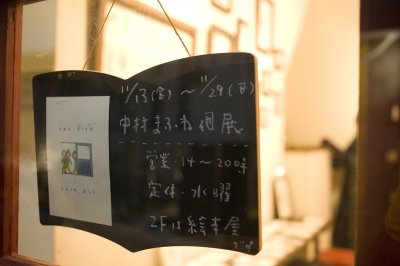 11/13(金)~11/29(日)
中村まふね個展
営業 14~20時
定休 水曜
2Fは絵本屋